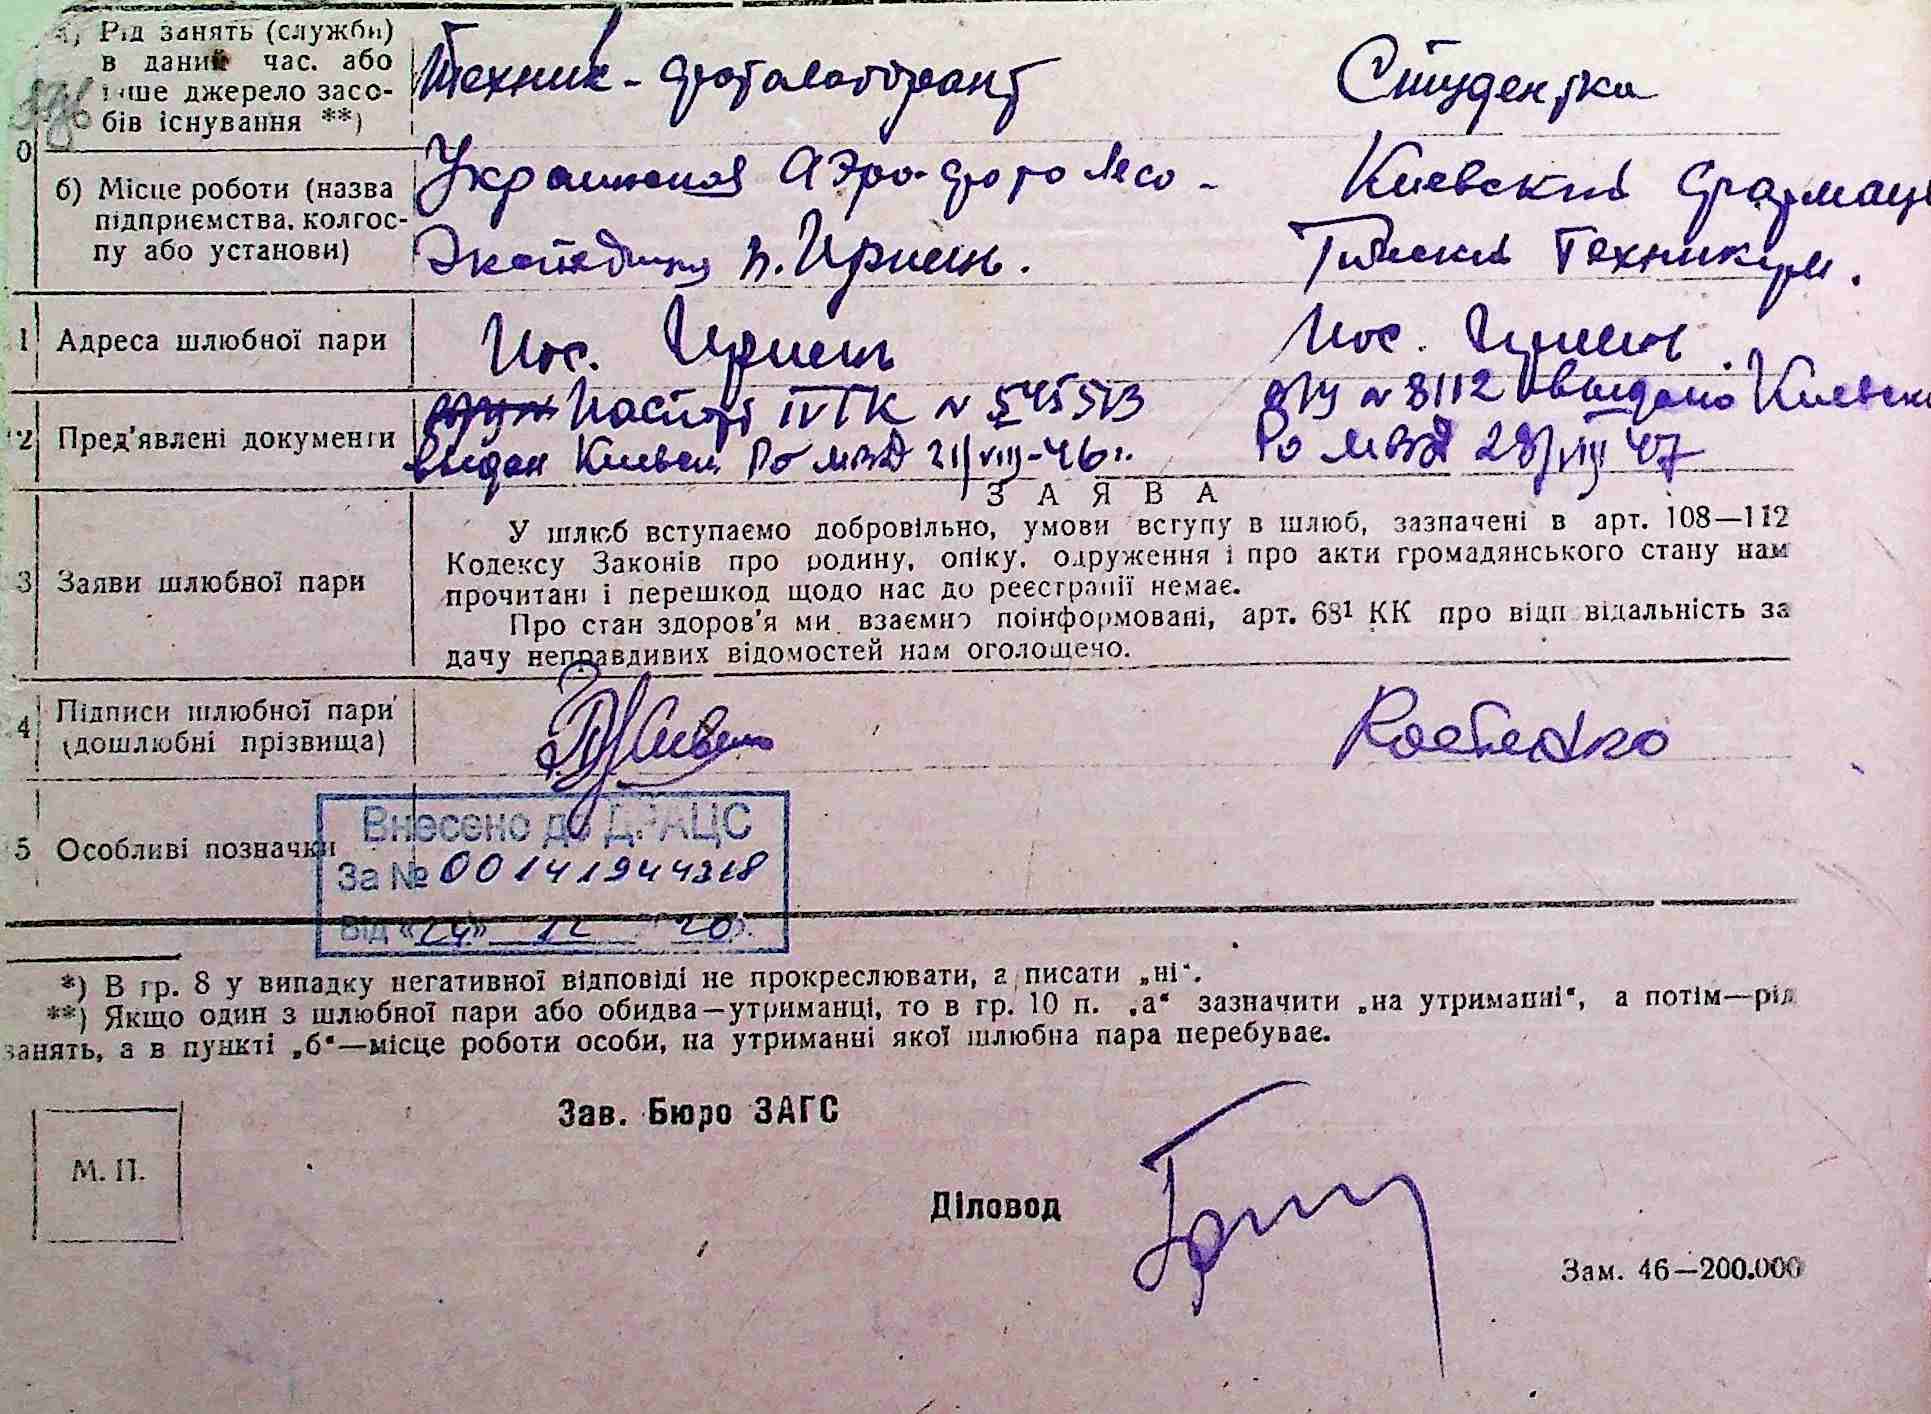 а) Рід занять (служби) в даний час. або інше джерело засобів існування **)
Техник-фотолаборант
Студентка
0
б) Місце роботи (назва підприємства, колгоспу або установи)
Украинская Аэро-фото лесо-
Экспедиция п. Ирпень.
Киевский Фармаце
Техникум.
1 Адреса шлюбної пари
Пос. Ирпень
Пос. Ирпень.
2 Пред'явлені документи
Паспорт IV ГК N 545513
выдан Киевск РО МВД 21/VIII-46г.
N 8112 выдано Киевски
РО МВД 28/VIII 47
3 Заяви шлюбної пари
ЗАЯВА
У шлюб вступаємо добровільно, умови вступу в шлюб, зазначені в арт. 108—112
Кодексу Законів про родину, опіку, одруження і про акти громадянського стану нам
прочитані і перешкод щодо нас до реєстрації немає.
Про стан здоров'я ми взаємно поінформовані, арт. 68¹ КК про відповідальність за
дачу неправдивих відомостей нам оголощено.
4 Підписи шлюбної пари
(дошлюбні прізвища)
5 Особливі позначки
Внесено до ДРАЦС
За № 00141944318
Від «24» 12 20
*) В гр. 8 у випадку негативної відповіді не прокреслювати, а писати „ні“.
**) Якщо один з шлюбної пари або обидва—утриманці, то в гр. 10 п. „а“ зазначити „на утриманні“, а потім—рід
занять, а в пункті „б“—місце роботи особи, на утриманні якої шлюбна пара перебуває.
Зав. Бюро ЗАГС
М. П.
Діловод
Зам. 46—200.000